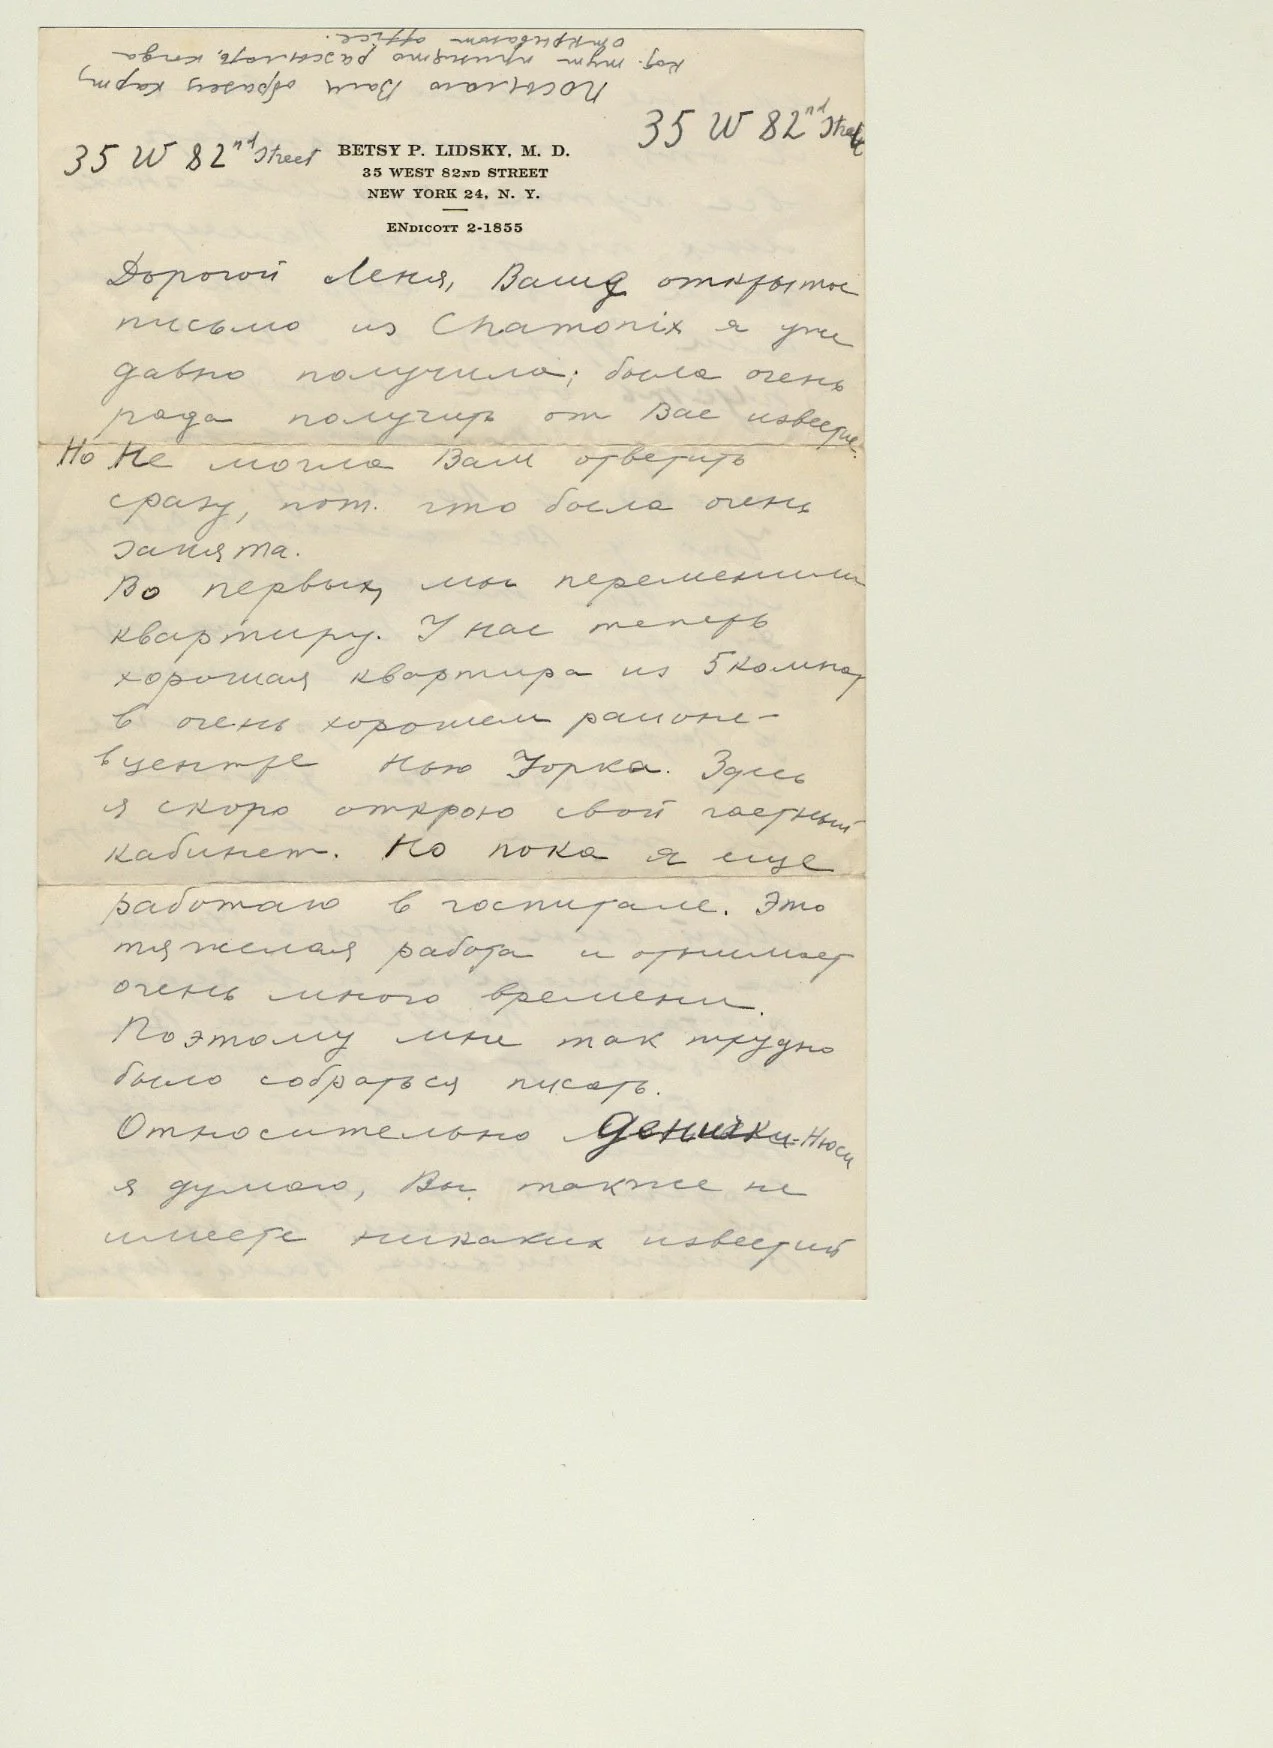 Посылаю Вам образец карт,
кот. тут принято рассылать, когда
открывают office.
35 W 82nd Street
35 W 82nd Street
BETSY P. LIDSKY, M. D.
35 WEST 82ND STREET
NEW YORK 24, N. Y.
ENDICOTT 2-1855
Дорогой Леня, Ваше открытое
письмо из Chamonix я уже
давно получила; была очень
рада получить от Вас известие.
Но не могла Вам ответить
сразу, пот. что была очень
занята.
Во первых, мы переменили
квартиру. У нас теперь
хорошая квартира из 5 комнат
в очень хорошем районе -
в центре Нью Йорка. Здесь
я скоро открою свой частный
кабинет. Но пока я еще
работаю в госпитале. Это
тяжелая работа и отнимает
очень много времени.
Поэтому мне так трудно
было собраться писать.
Относительно Нюси
я думаю, Вы также не
имеете никаких известий